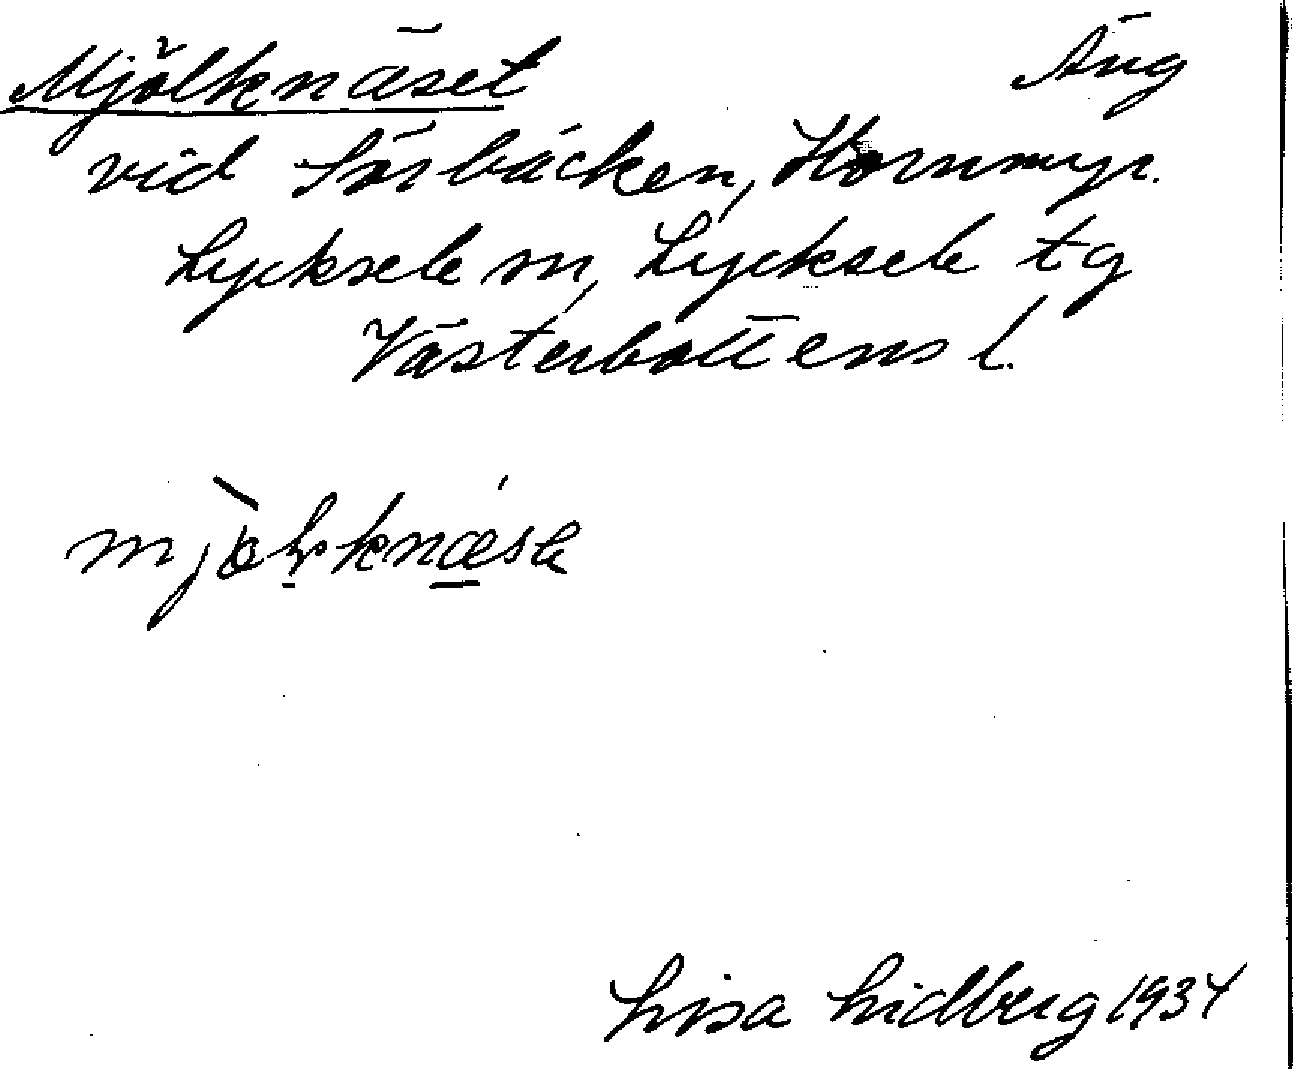 Mjölknäset Äng
vid Sörbäcken, Hornmyr.
Lycksele sn, Lycksele tg
Västerbottens l.
Lisa Lidberg 1934